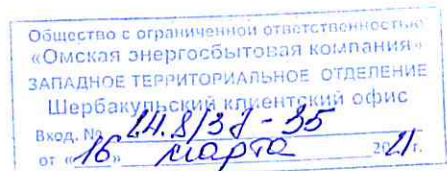 Общество с ограниченной ответственностью
«Омская энергосбытовая компания»
ЗАПАДНОЕ ТЕРРИТОРИАЛЬНОЕ ОТДЕЛЕНИЕ
Шербакульский клиентский офис
Вход. №
от «16» марта 2021г.